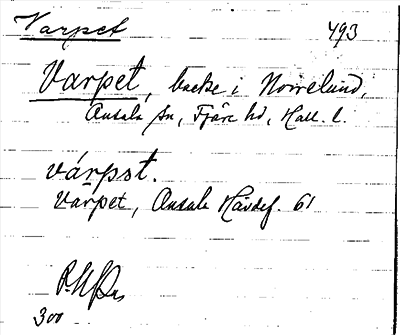 Varpet 493
Varpet, backe i Norrelund,
Onsala sn, Fjäre hd, Hall. l.
várpət.
Varpet, Onsala Hävdef. 61
300